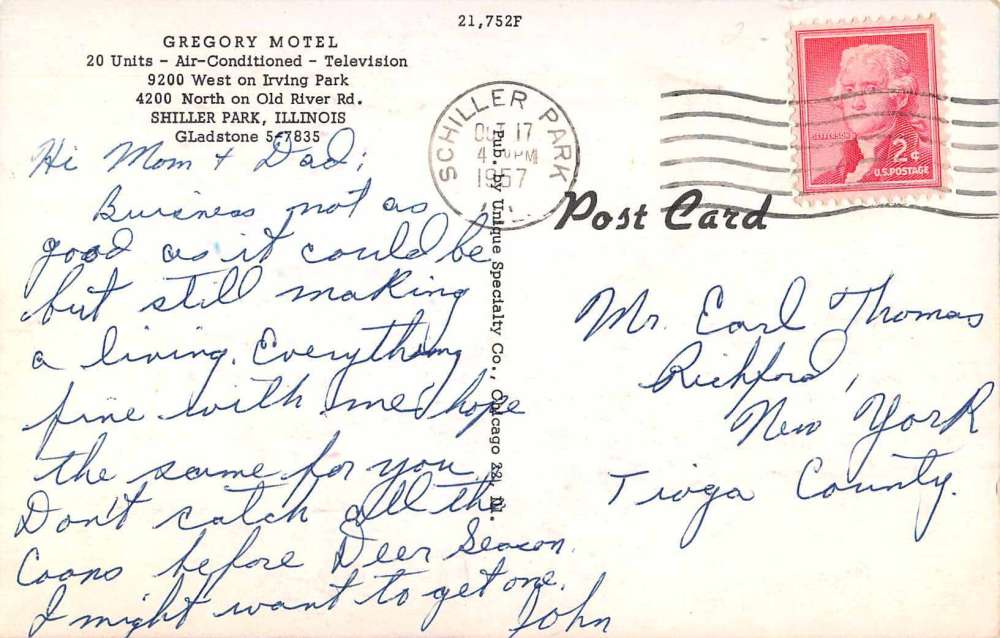 21,752F
GREGORY MOTEL
20 Units - Air-Conditioned - Television
9200 West on Irving Park
4200 North on Old River Rd.
SHILLER PARK, ILLINOIS
GLadstone 5-7835
Hi Mom + Dad,
Business not as
good as it could be
but still making
a living. Everything
fine with me & hope
the same for you.
Don't catch all the
Coons before Deer Season.
I might want to get one.
John
Pub. by Unique Specialty Co., Chicago 22, Ill.
SCHILLER PARK
OCT 17
PM
1957
JEFFERSON
2¢
U.S. POSTAGE
Post Card
Mr. Earl Thomas
Richford,
New York
Tioga County.